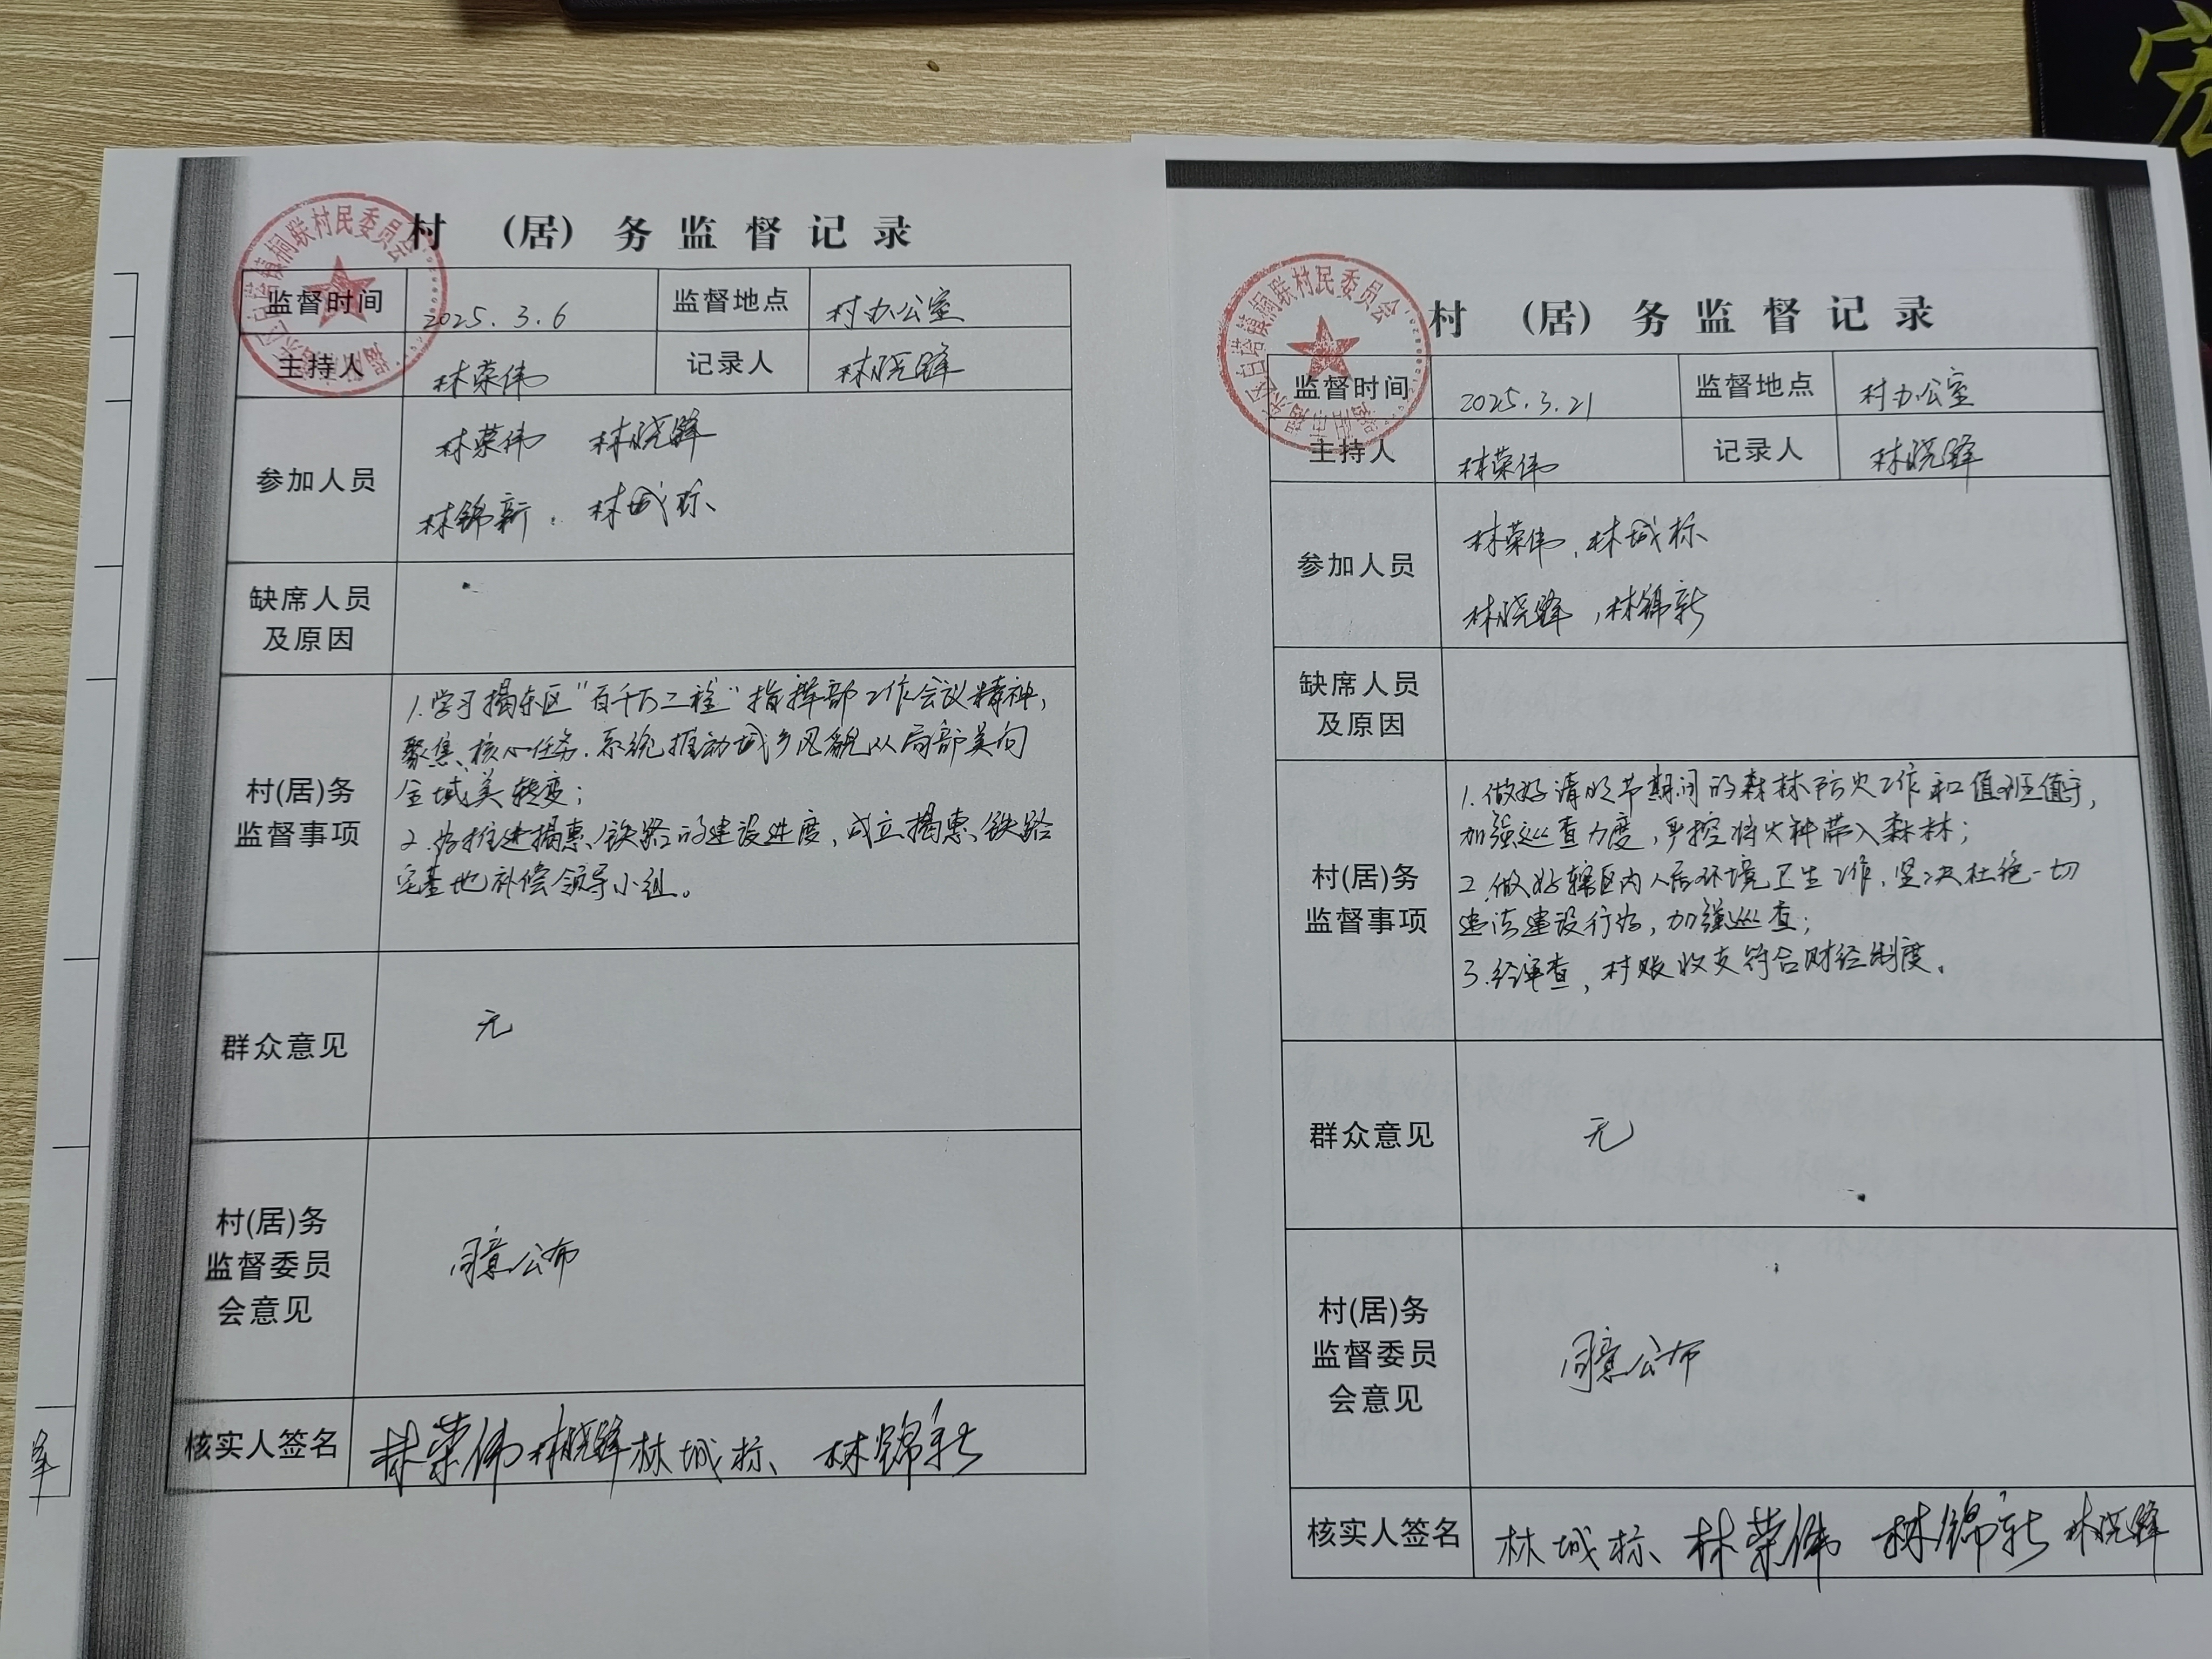 村（居）务监督记录
监督时间 2025.3.6 监督地点 村办公室
主持人 林荣伟 记录人 林晓锋
参加人员
林荣伟 林晓锋
林锦新. 林城标
缺席人员
及原因
村(居)务
监督事项
1.学习揭东区"百千万工程"指挥部工作会议精神,
聚焦核心任务.系统推动城乡风貌从局部美向
全域美转变;
2.为推进揭惠铁路的建设进度,成立揭惠铁路
宅基地补偿领导小组。
群众意见 无
村(居)务
监督委员
会意见
同意公布
核实人签名 林荣伟 林晓锋 林城标 林锦新
村（居）务监督记录
监督时间 2025.3.21 监督地点 村办公室
主持人 林荣伟 记录人 林晓锋
参加人员
林荣伟,林城标
林晓锋,林锦新
缺席人员
及原因
村(居)务
监督事项
1.做好清明节期间的森林防火工作和值班值守,
加强巡查力度,严控将火种带入森林;
2.做好辖区内人居环境卫生工作.坚决杜绝一切
违法建设行为,加强巡查;
3.经审查,村账收支符合财经制度。
群众意见 无
村(居)务
监督委员
会意见
同意公布
核实人签名 林城标 林荣伟 林锦新 林晓锋
白塔镇桐联村民委员会
白塔镇桐联村民委员会
宏